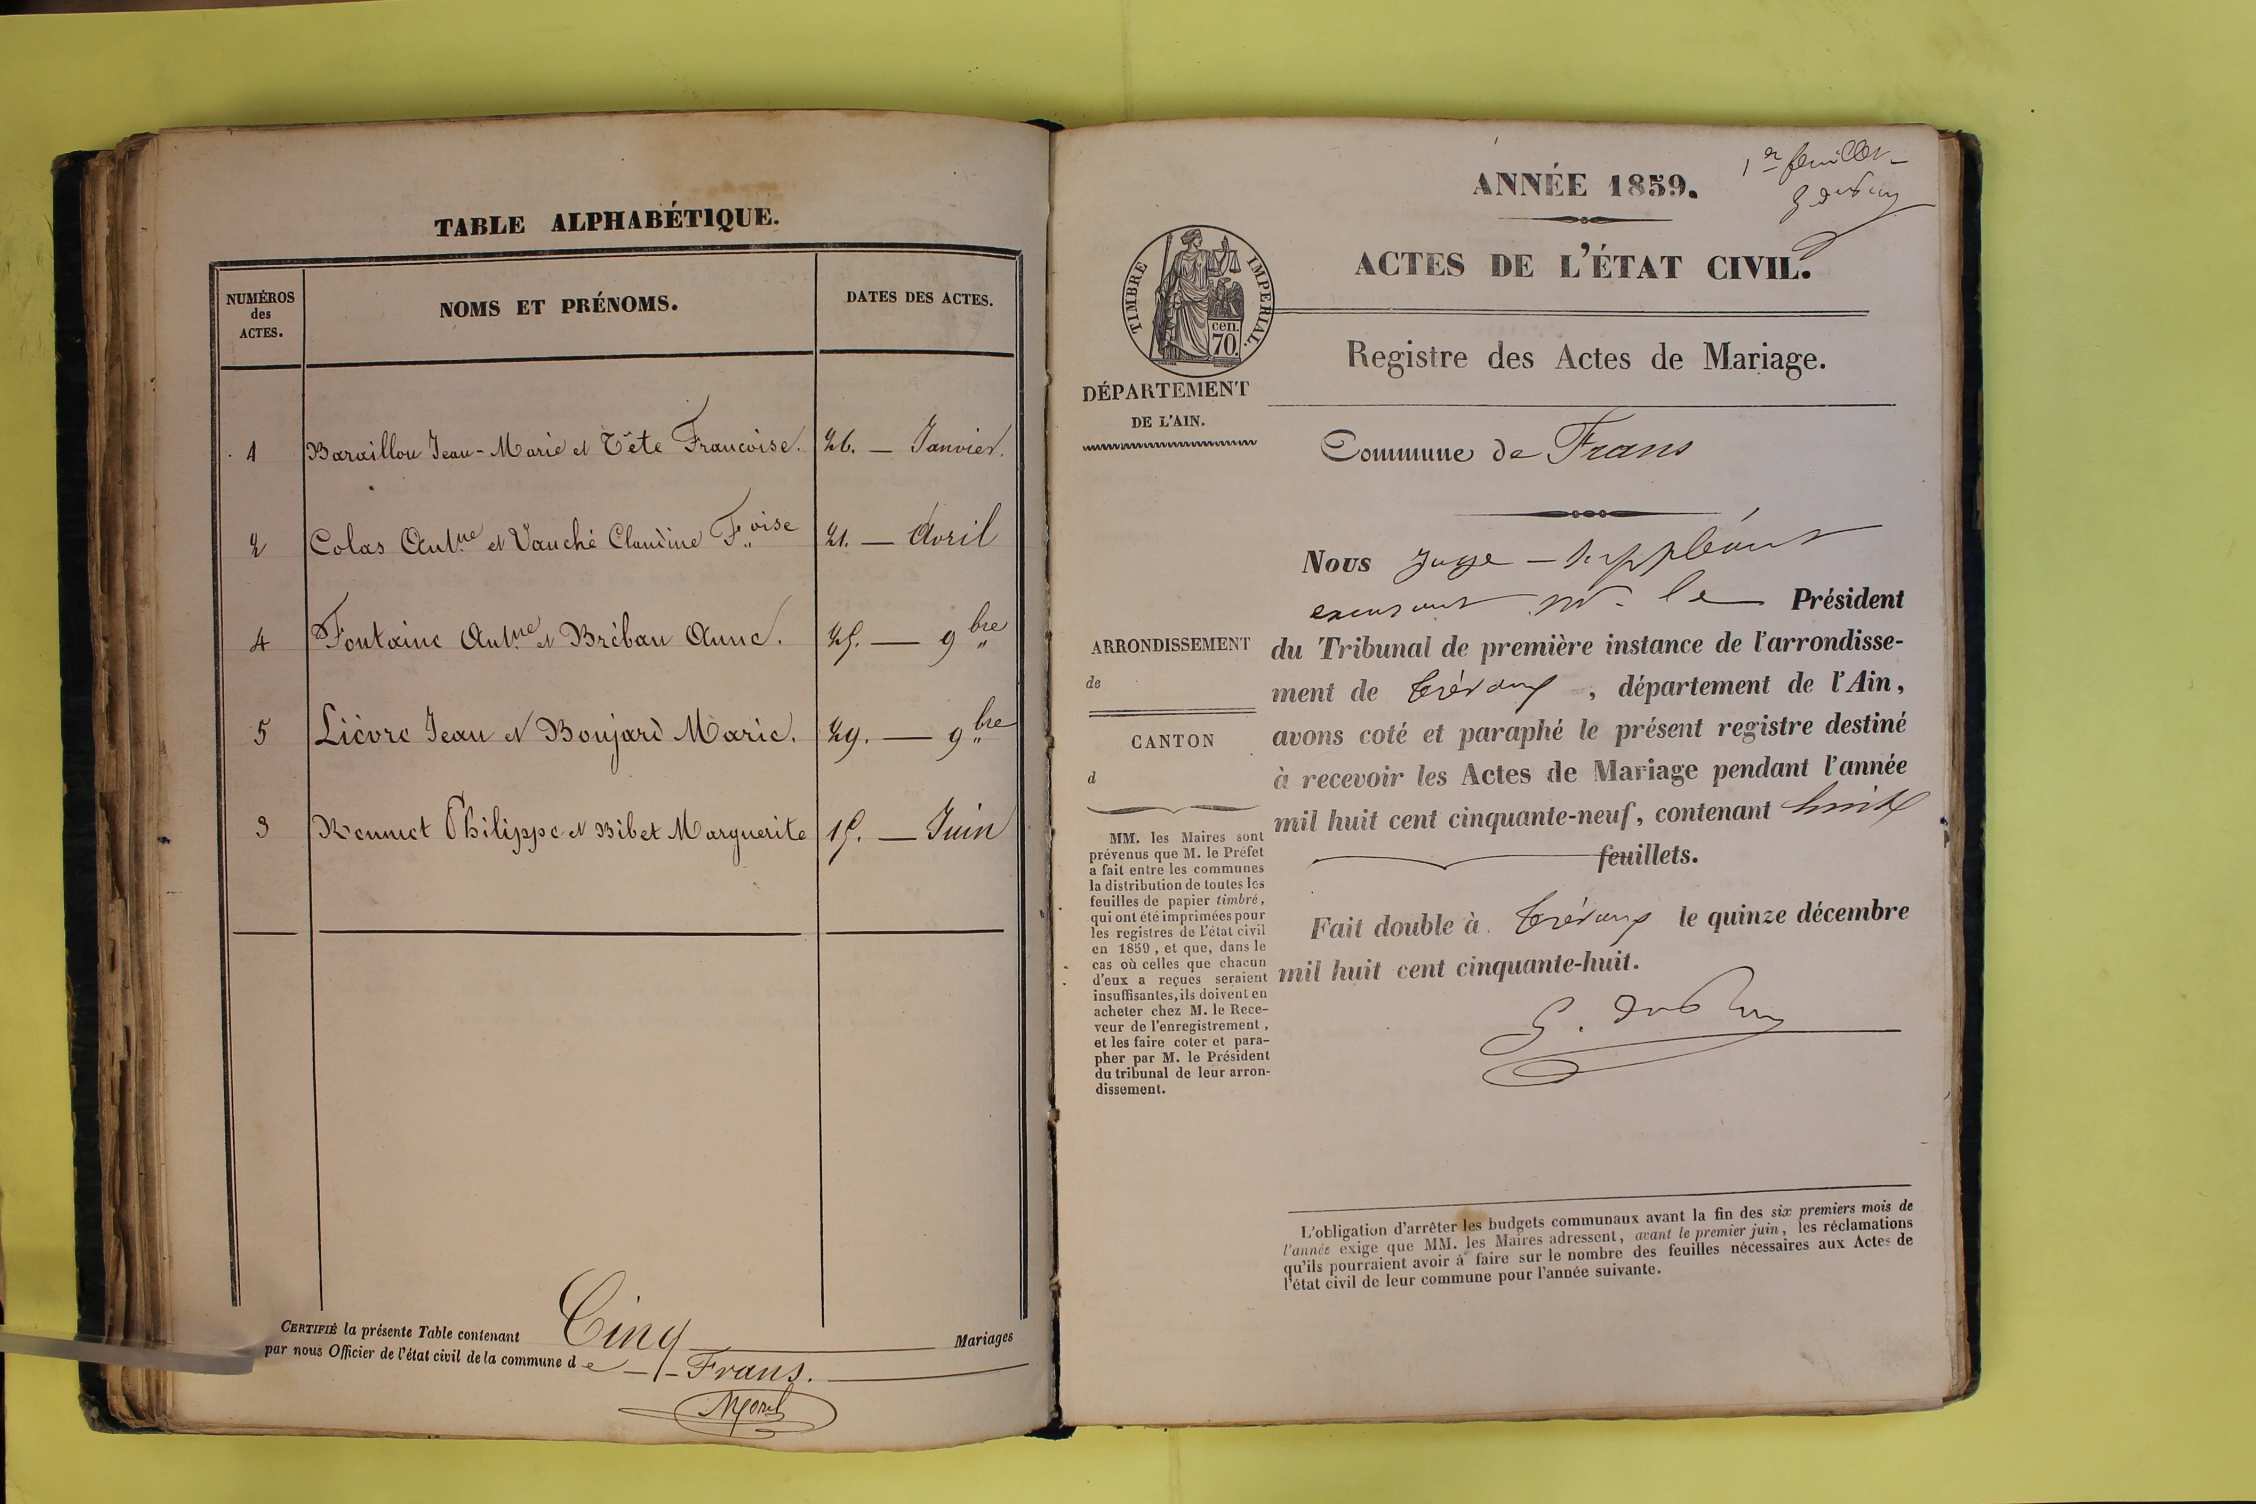 TABLE ALPHABÉTIQUE.
NUMÉROS
des
ACTES.
NOMS ET PRÉNOMS.
DATES DES ACTES.
1 Baraillou Jean-Marie et Tête Francoise. 26. — Janvier.
2 Colas Ant.ne et Vauché Claudine F.oise 21. — Avril
4 Fontaine Ant.ne et Bréban Anne. 25. — 9bre
5 Lièvre Jean et Boujard Marie. 29. — 9bre
3 Philippe et Bibet Marguerite 15. — Juin
CERTIFIÉ la présente Table contenant Cinq Mariages
par nous Officier de l'état civil de la commune de Frans.
Morel
1er feuillet
ANNÉE 1859.
ACTES DE L'ÉTAT CIVIL.
TIMBRE IMPERIAL.
cen.
70.
Registre des Actes de Mariage.
DÉPARTEMENT
DE L'AIN.
Commune de Frans
ARRONDISSEMENT
de
CANTON
d
MM. les Maires sont
prévenus que M. le Préfet
a fait entre les communes
la distribution de toutes les
feuilles de papier timbré,
qui ont été imprimées pour
les registres de l'état civil
en 1859, et que, dans le
cas où celles que chacun
d'eux a reçues seraient
insuffisantes, ils doivent en
acheter chez M. le Rece-
veur de l'enregistrement,
et les faire coter et para-
pher par M. le Président
du tribunal de leur arron-
dissement.
Nous Juge-suppléant
excusant Mr. le Président
du Tribunal de première instance de l'arrondisse-
ment de Trévoux, département de l'Ain,
avons coté et paraphé le présent registre destiné
à recevoir les Actes de Mariage pendant l'année
mil huit cent cinquante-neuf, contenant huit
feuillets.
Fait double à Trévoux le quinze décembre
mil huit cent cinquante-huit.
L'obligation d'arrêter les budgets communaux avant la fin des six premiers mois de
l'année exige que MM. les Maires adressent, avant le premier juin, les réclamations
qu'ils pourraient avoir à faire sur le nombre des feuilles nécessaires aux Actes de
l'état civil de leur commune pour l'année suivante.